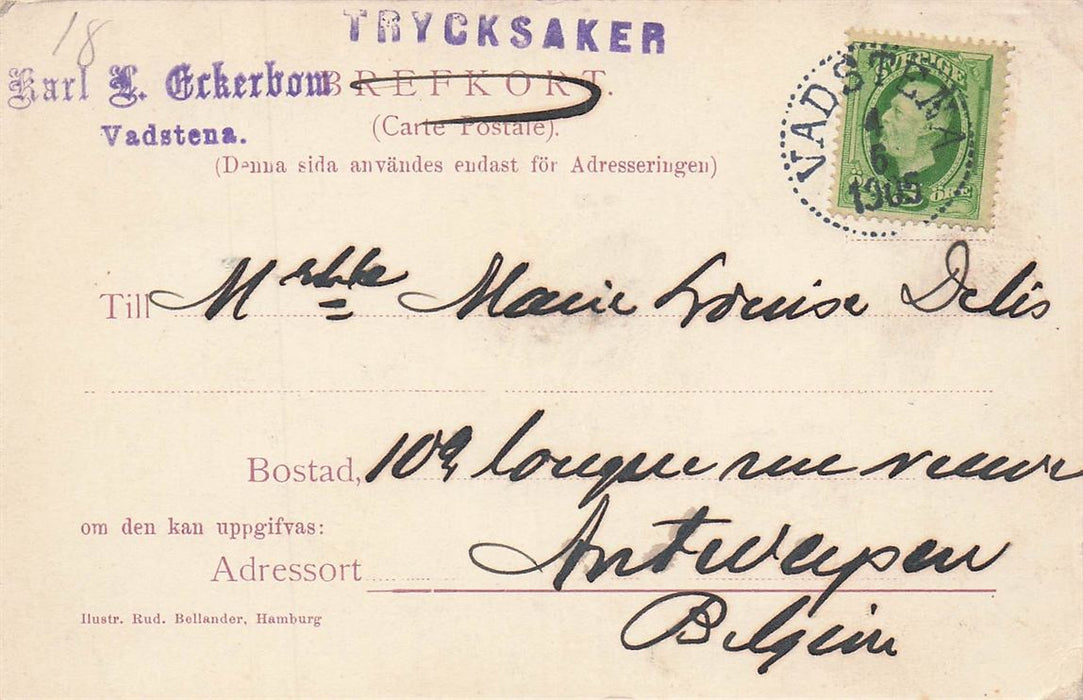 18
TRYCKSAKER
Karl L. Eckerbom
Vadstena.
BREFKORT.
(Carte Postale).
(Denna sida användes endast för Adresseringen)
SVERIGE
5 ÖRE
VADSTENA
1
6
1905
Till Marie Louise Delis
Bostad, 109 longue rue neuve
om den kan uppgifvas:
Adressort Antwerpen
Belgien
Illustr. Rud. Bellander, Hamburg